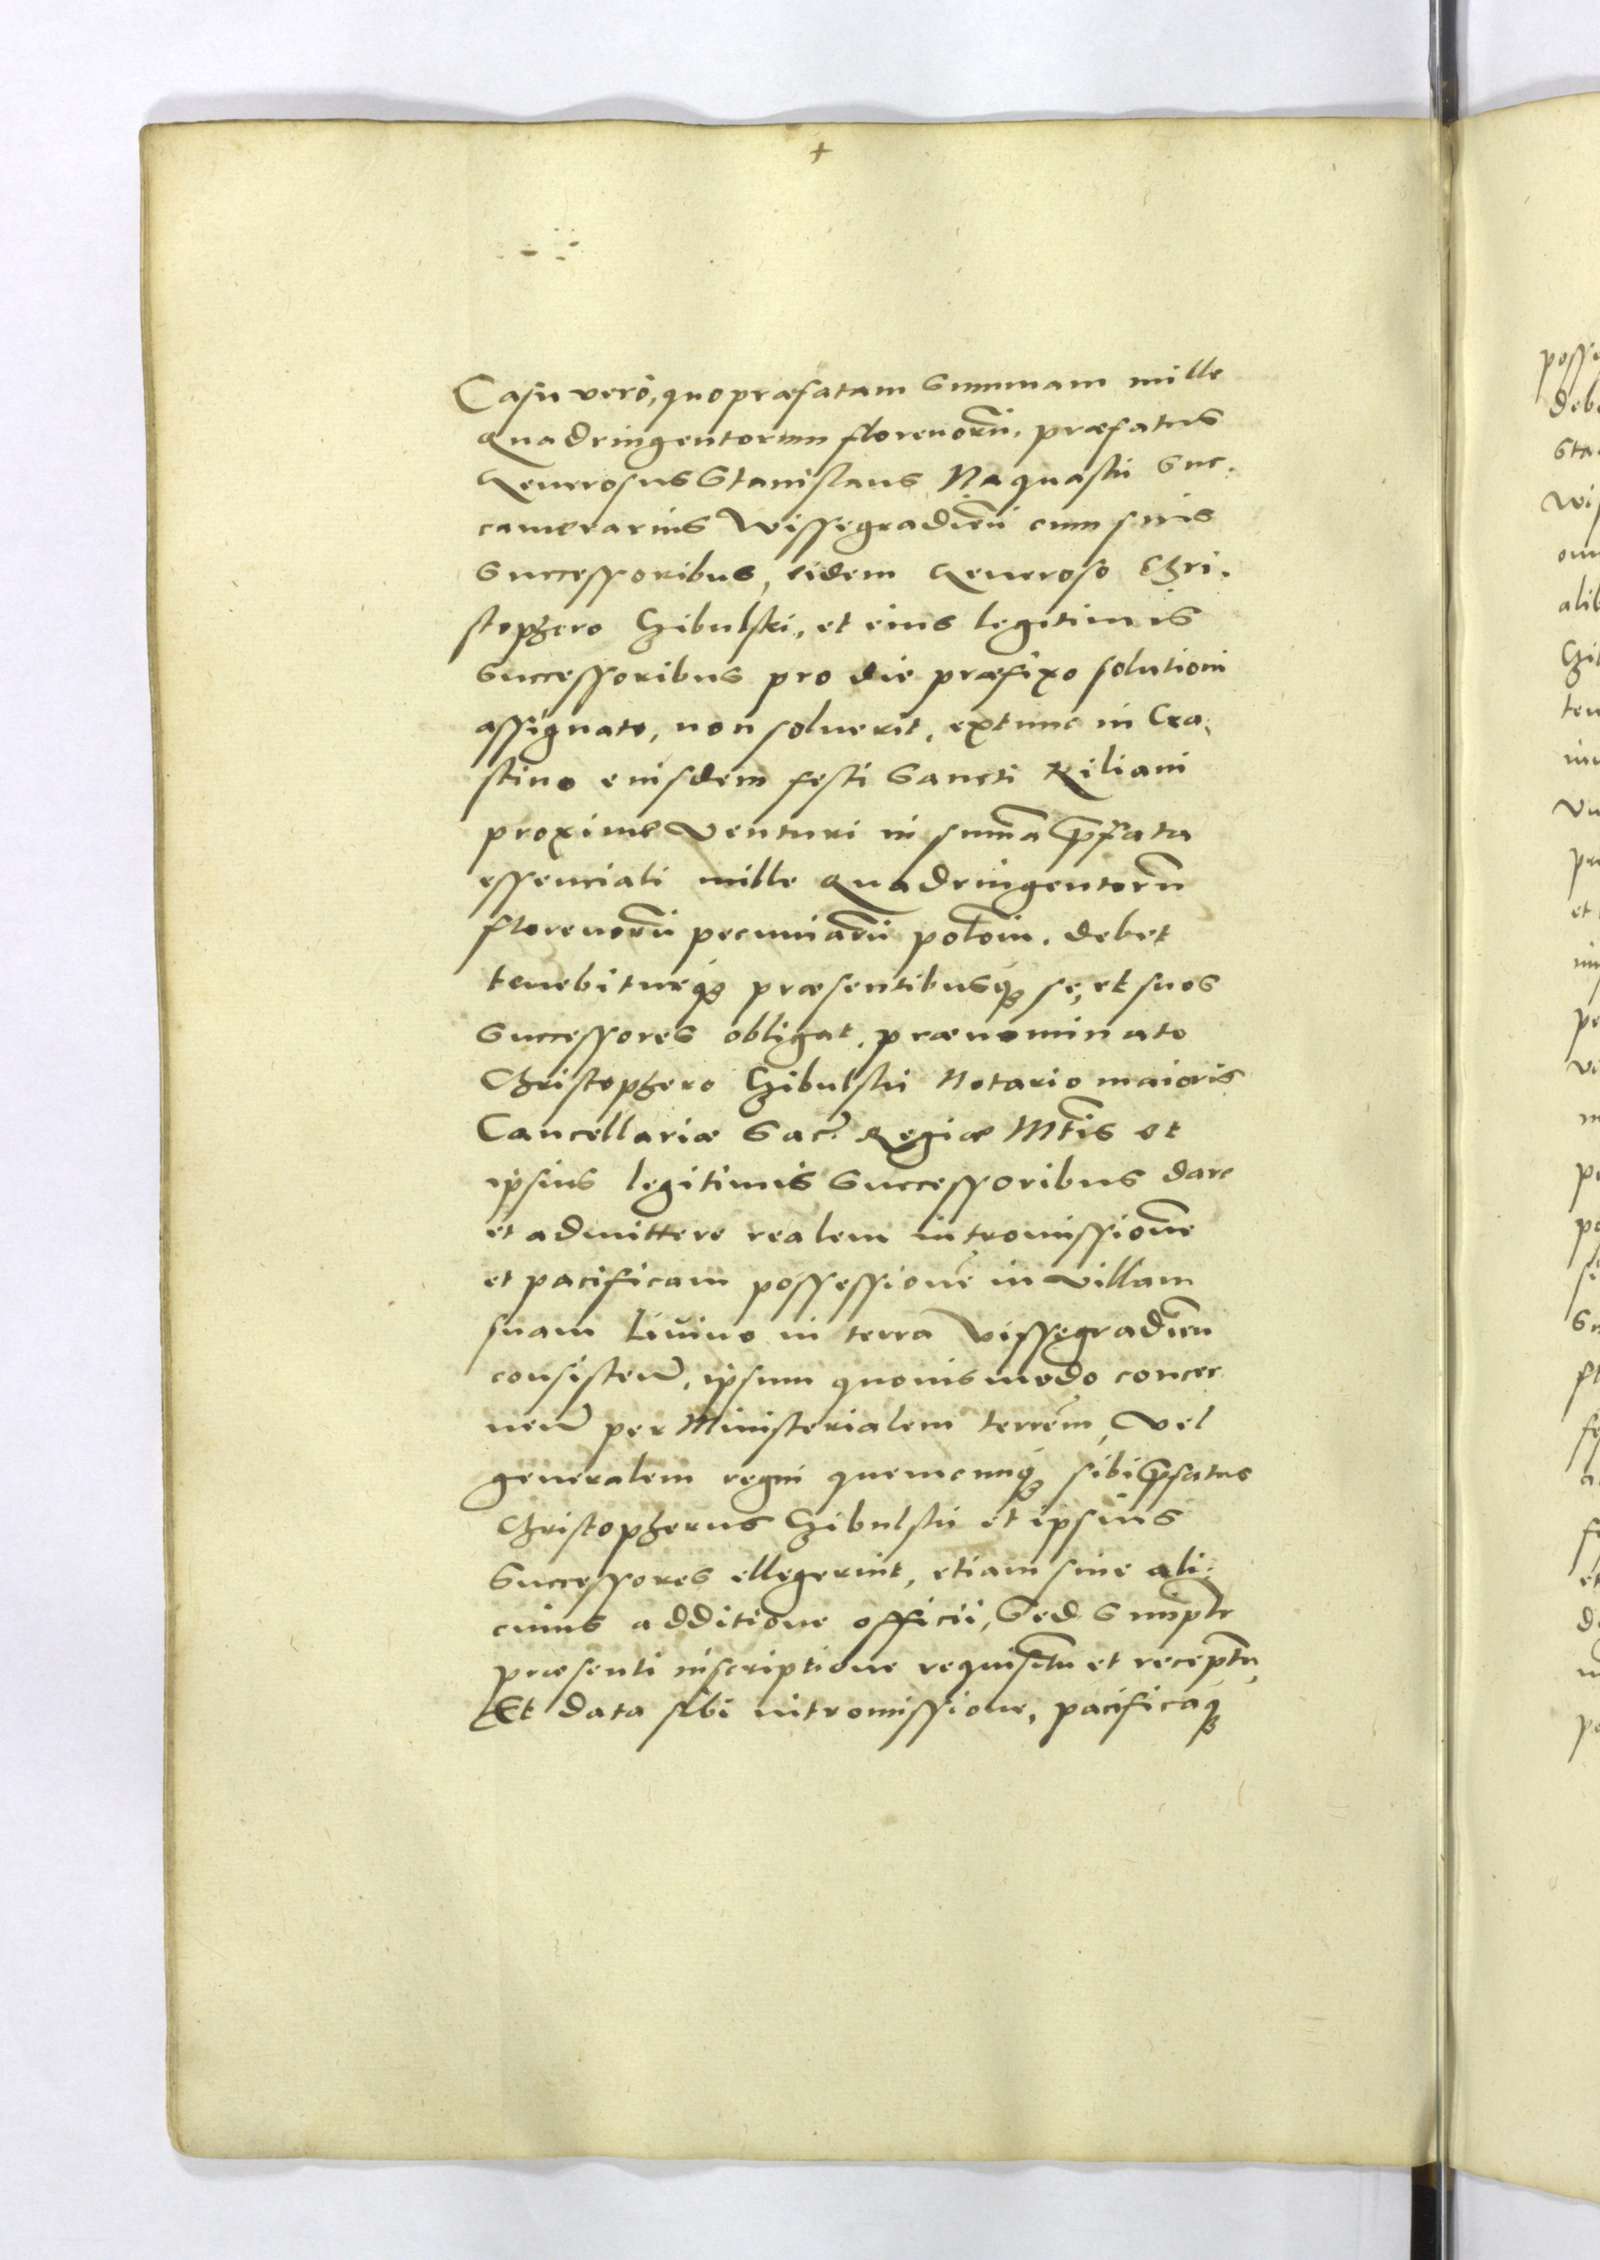 +
Casu vero, quo præfatam Summam mille
Quadringentorum florenorū, præfatus
Generosus Stanislaus Naquaski Suc.
camerarius Wissegradien̄ cum suis
Successoribus, eidem Generoso Chri.
stophero Czibulski, et eius legitimis
Successoribus pro die præfixo solutioni
assignato, non soluerit, extunc in Cra.
stino eiusdem festi Sancti Kiliani
proxime Venturi in sum̄a p̄fata
essenciali mille Quadringentorū
florenorū pecuniarū polon̄. debet
tenebiturq₃ præsentibusq₃ se, et suos
Successores obligat, prænominato
Christophero Czibulski Notario maioris
Cancellariæ Sac̄. Regiæ Mt̄is et
ipsius legitimis Successoribus dare
et admittere realem intromissionē
et pacificam possessionē in Villam
suam Liuino in terra Vissegradien̄
consisten̄, ipsum quouis modo concer
nen̄ per Ministerialem terrēm, Vel
generalem regni quemcunq₃ sibi p̄fatus
Christopherus Czibulski et ipsius
Successores ellegerint, etiam sine ali.
cuius additione officii, Sed Simpl̄r
præsenti inscriptione requisitū et receptū,
Et data sibi intromissione, pacificaq₃